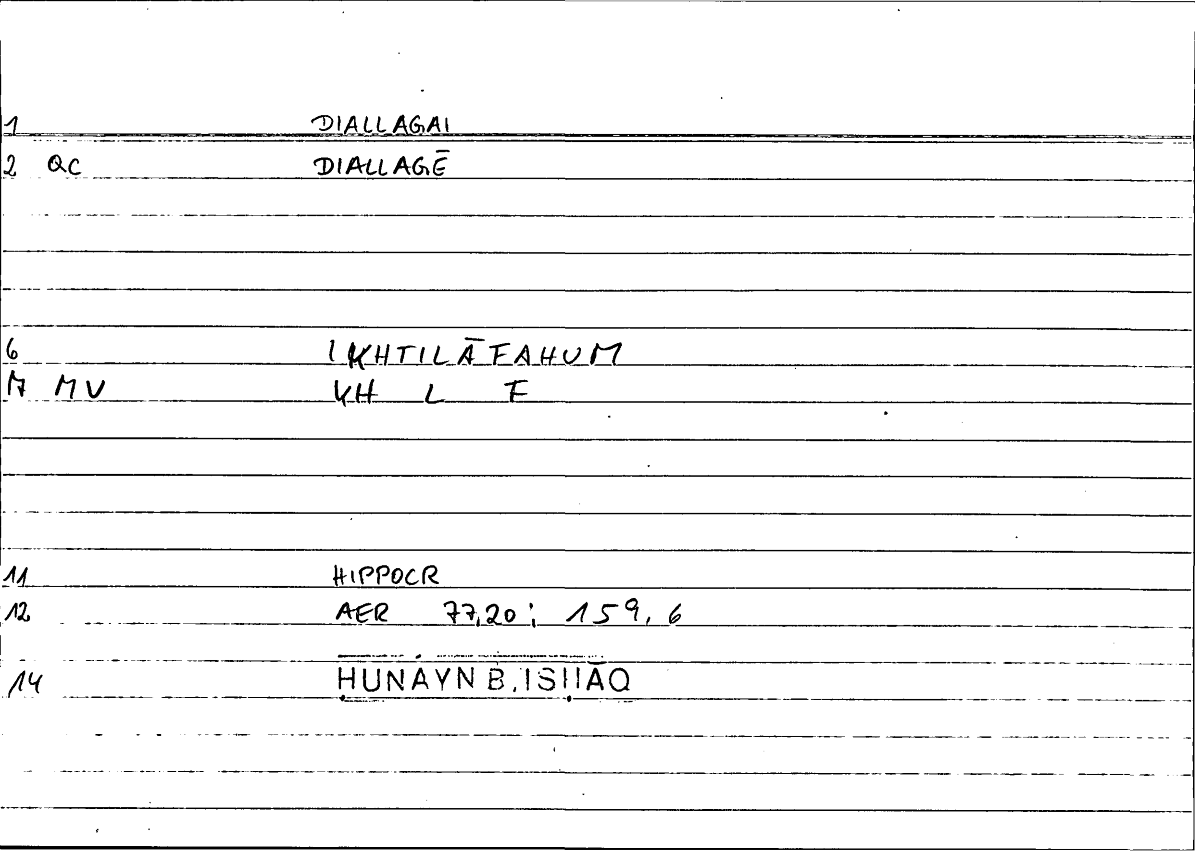 1 DIALLAGAI
2 QC DIALLAGĒ
6 IKHTILĀFAHUM
7 MV KH L F
11 HIPPOCR
12 AER 77,20; 159,6
14 ḤUNAYN B. ISḤĀQ